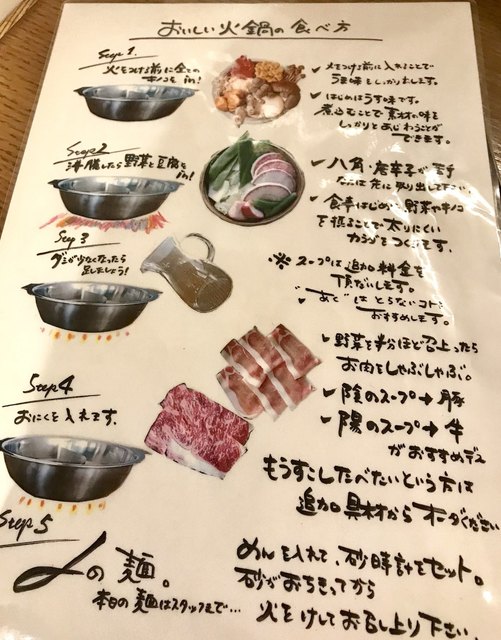 おいしい火鍋の食べ方
Step 1.
火をつける前に全ての
キノコを in!
✓ 火をつける前に入れることで
うま味をしっかり出します。
✓ はじめはうす味です。
煮込むことで素材の味を
しっかりとあじわうことが
できます。
Step2
沸騰したら野菜と豆腐を
in!
✓ 八角・唐辛子が苦手
な方は先に取り出して下さい。
✓ 食事はじめに野菜やキノコ
を摂ることで太りにくい
カラダをつくります。
Step 3
ダシが少なくなったら
足しましょう!
※スープは追加料金を
頂だいします。
"あく"はとらないコトを
おすすめします。
Step4
おにくを入れます。
✓ 野菜を半分ほど召上ったら
お肉をしゃぶしゃぶ。
✓ 陰のスープ→豚
✓ 陽のスープ→牛
がおすすめデス
もうすこしたべたいという方は
追加具材からオーダください
Step 5
〆の麺。
本日の麺はスタッフまで…
めんを入れて、砂時計をセット。
砂がおちきってから
火をけしてお召し上り下さい。